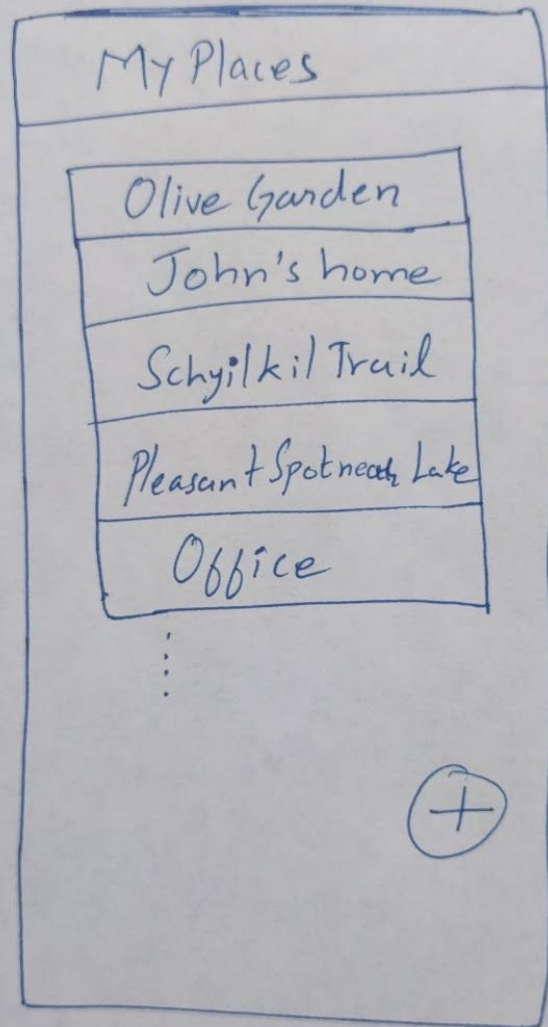 My Places
Olive Garden
John's home
Schyilkil Trail
Pleasant Spot near Lake
Office
+